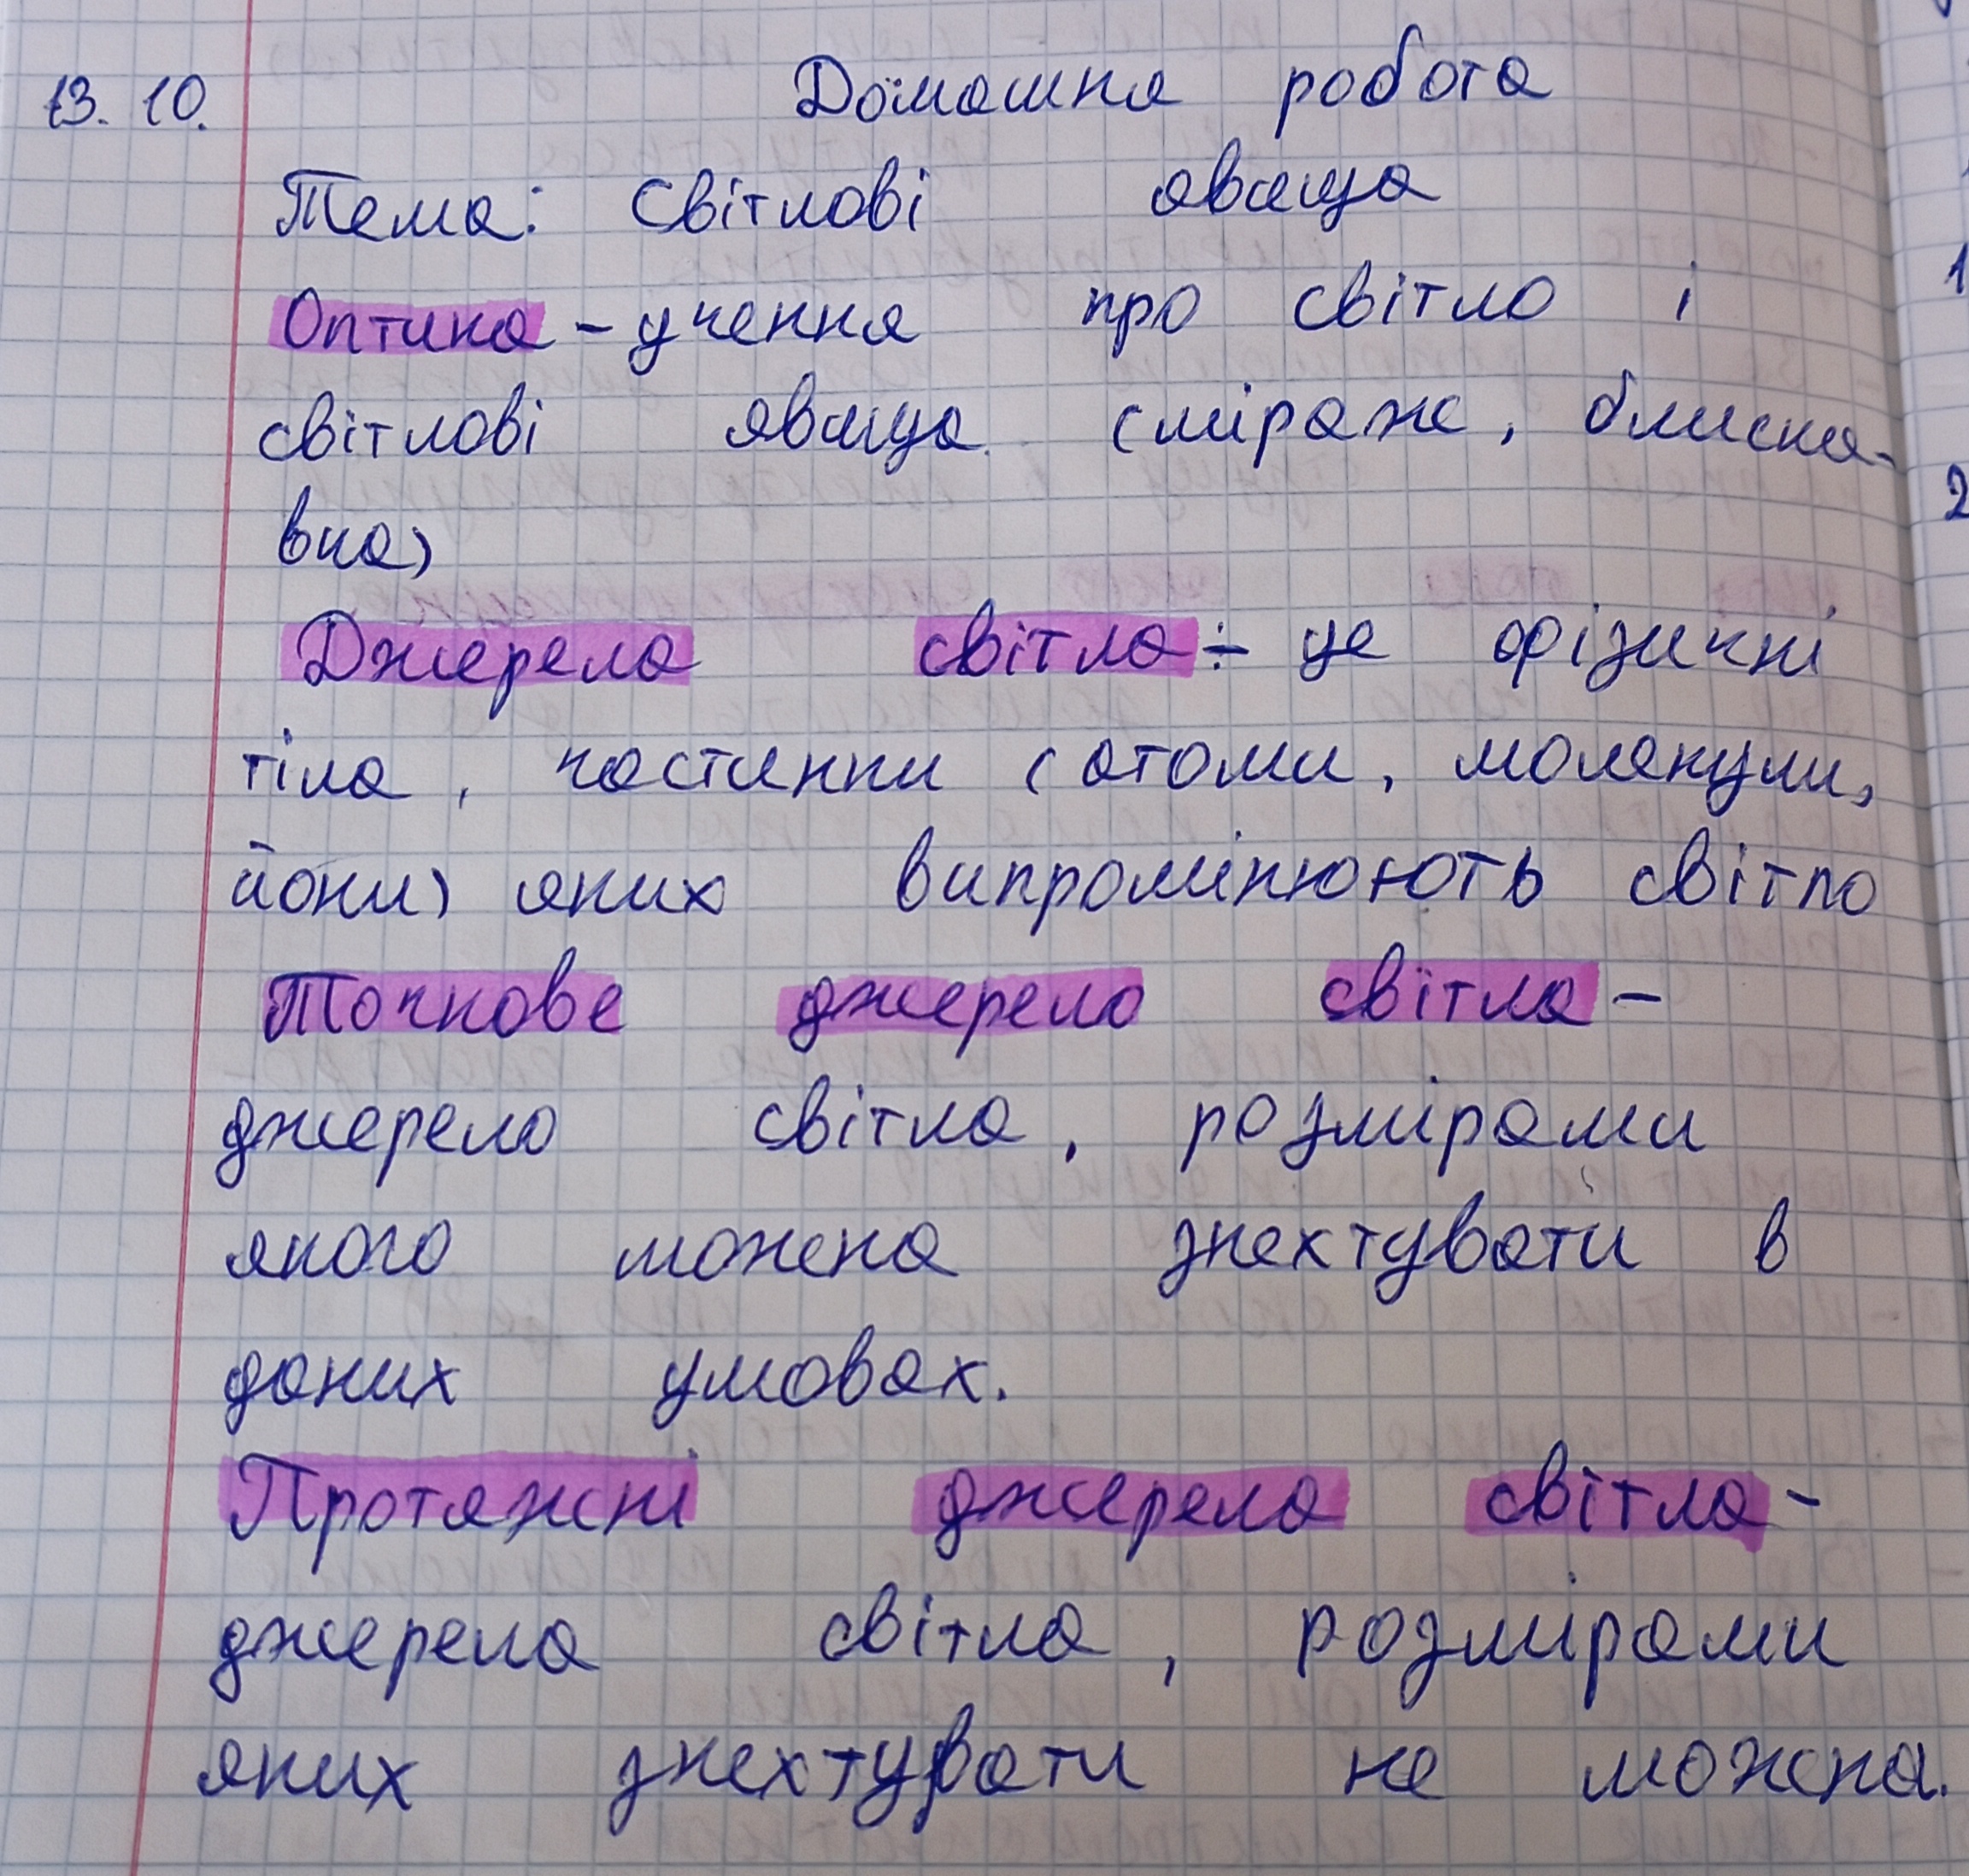 13. 10. Домашня робота
Тема: Світлові явища
Оптика - учення про світло і
світлові явища (міраж, блиска-
вка)
Джерела світла - це фізичні
тіла, частинки (атоми, молекули,
йони) яких випромінюють світло
Точкове джерело світла -
джерело світла, розмірами
якого можна знехтувати в
даних умовах.
Протяжні джерела світла -
джерела світла, розмірами
яких знехтувати не можна.
1
2